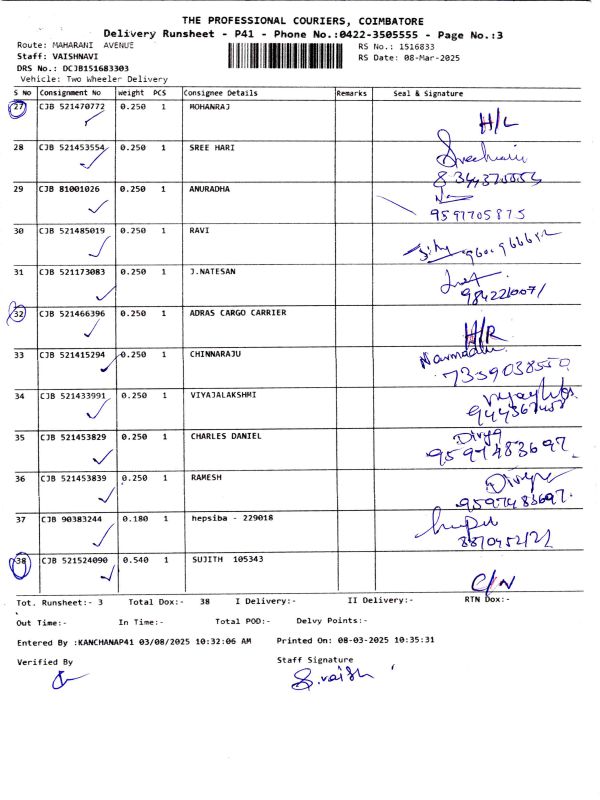 THE PROFESSIONAL COURIERS, COIMBATORE
Delivery Runsheet - P41 - Phone No.:0422-3505555 - Page No.:3
Route: MAHARANI AVENUE
RS No.: 1516833
Staff: VAISHNAVI
RS Date: 08-Mar-2025
DRS No.: DCJB151683303
Vehicle: Two Wheeler Delivery
S No Consignment No Weight PCS Consignee Details Remarks Seal & Signature
27 CJB 521470772 0.250 1 MOHANRAJ H/L
28 CJB 521453554 0.250 1 SREE HARI
29 CJB 81001026 0.250 1 ANURADHA
9597705875
30 CJB 521485019 0.250 1 RAVI
31 CJB 521173083 0.250 1 J.NATESAN
32 CJB 521466396 0.250 1 ADRAS CARGO CARRIER H/R
33 CJB 521415294 0.250 1 CHINNARAJU
7339038550
34 CJB 521433991 0.250 1 VIYAJALAKSHMI
35 CJB 521453829 0.250 1 CHARLES DANIEL Divya
9597483697
36 CJB 521453839 0.250 1 RAMESH Divya
9597483697
37 CJB 90383244 0.180 1 hepsiba - 229018
38 CJB 521524090 0.540 1 SUJITH 105343 C/N
Tot. Runsheet:- 3 Total Dox:- 38 I Delivery:- II Delivery:- RTN Dox:-
Out Time:- In Time:- Total POD:- Delvy Points:-
Entered By :KANCHANAP41 03/08/2025 10:32:06 AM Printed On: 08-03-2025 10:35:31
Verified By Staff Signature
S.vaish